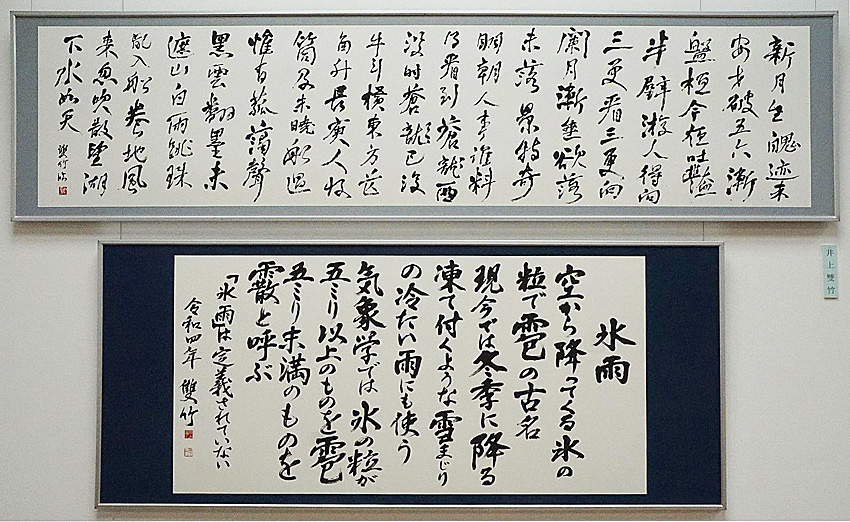 新月生魄迹未
安才破五六漸
盤桓今夜吐艶
半璧遊人得向
三更看三更向
闌月漸垂欲落
未落景特奇
明朝人事誰料
得看到蒼龍西
没時蒼龍已没
牛斗横東方芒
角升長庚人收
筒及未曉船過
惟有菰蒲聲
黒雲翻墨未
遮山白雨跳珠
亂入船巻地風
来忽吹散望湖
下水如天 雙竹
井上雙竹
氷雨
空から降ってくる氷の
粒で雹の古名
現今では冬季に降る
凍て付くような雪まじり
の冷たい雨にも使う
気象学では氷の粒が
五ミリ以上のものを雹
五ミリ未満のものを
霰と呼ぶ
「氷雨」は定義されていない
令和四年 雙竹